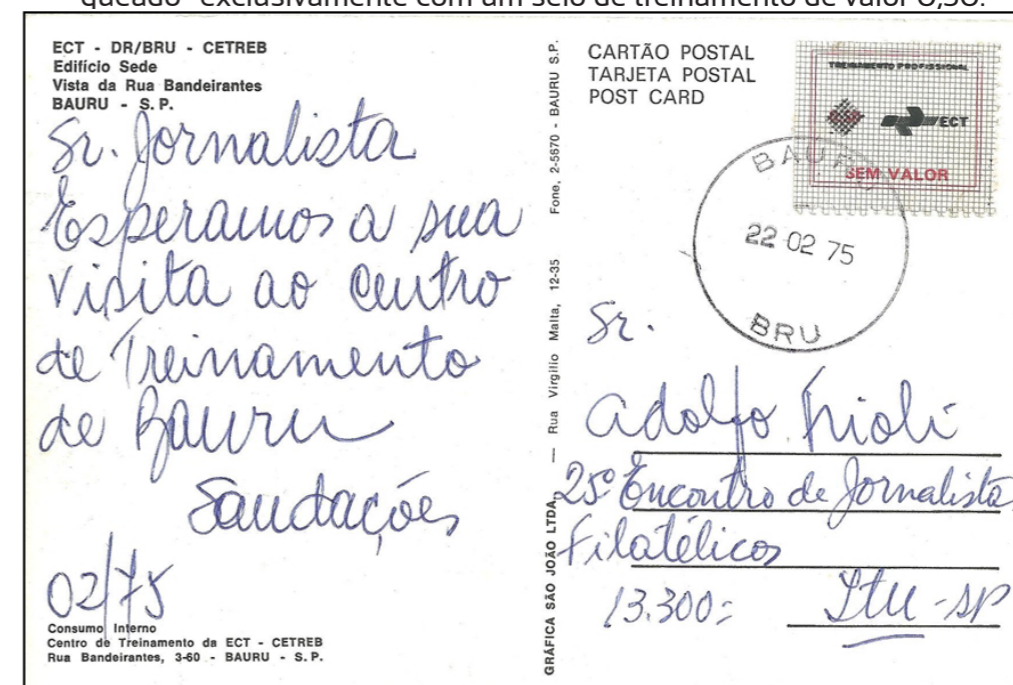 queado" exclusivamente com um selo de treinamento de valor 0,50.
ECT - DR/BRU - CETREB
Edifício Sede
Vista da Rua Bandeirantes
BAURU - S. P.
Sr. Jornalista
Esperamos a sua
visita ao Centro
de Treinamento
de Bauru
Saudações
02/75
Consumo Interno
Centro de Treinamento da ECT - CETREB
Rua Bandeirantes, 3-60 - BAURU - S. P.
GRÁFICA SÃO JOÃO LTDA. — Rua Virgilio Malta, 12-35 Fone, 2-5670 - BAURU S.P.
CARTÃO POSTAL
TARJETA POSTAL
POST CARD
TREINAMENTO PROFISSIONAL
ECT
SEM VALOR
BAURU
22 02 75
BRU
Sr.
Adolfo Frioli
25º Encontro de Jornalistas
Filatélicos
13.300= Itu - SP